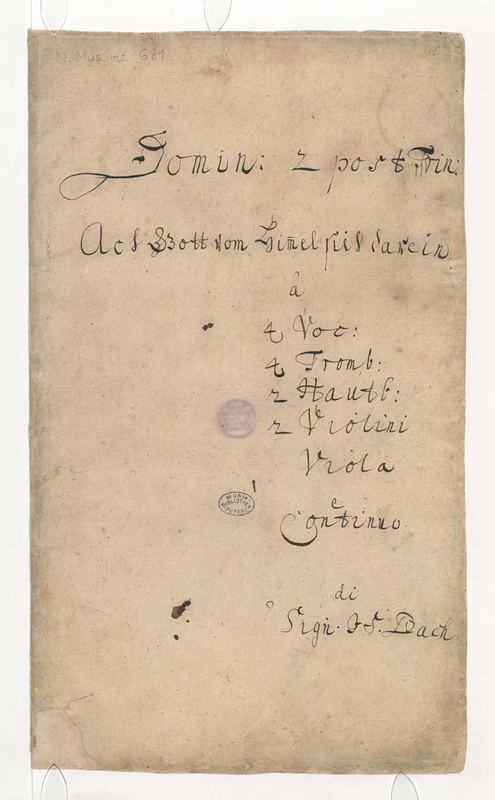 N. Mus. ms. 681
12
Domin: 2 post Trin:
Ach Gott vom Him̄el sieh darein
â
4 Voc:
4 Tromb:
2 Hautb:
2 Violini
Viola
e
Continuo
MUSIK
BIBLIOTHEK
PETERS
di
Sign. J. S. Bach